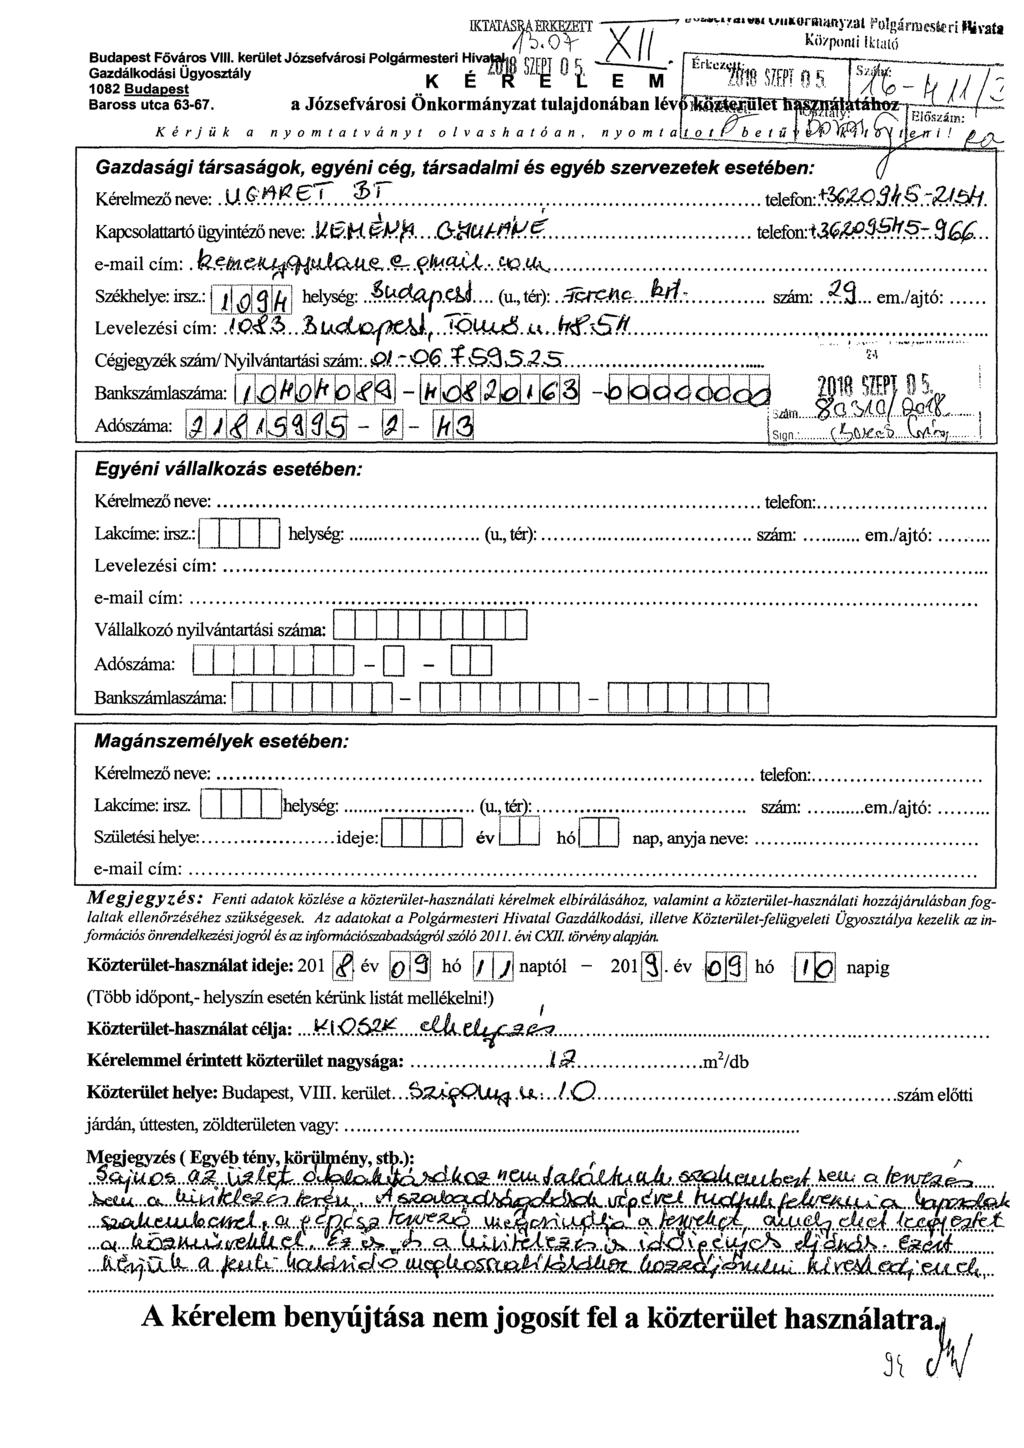 IKTATÁSRA ÉRKEZETT
13.07
XII.
Önkormányzat Polgármesteri Hivata
Központi Iktató
Budapest Főváros VIII. kerület Józsefvárosi Polgármesteri Hivatal
Gazdálkodási Ügyosztály
1082 Budapest
Baross utca 63-67.
2018 SZEPT 05.
Érkezett:
2018 SZEPT 05.
Szám:
16-411/3
Előszám:
K É R E L E M
a Józsefvárosi Önkormányzat tulajdonában lévő közterület használatához
Kérjük a nyomtatványt olvashatóan, nyomtatott betűvel kitölteni!
Gazdasági társaságok, egyéni cég, társadalmi és egyéb szervezetek esetében:
Kérelmező neve: UGARET BT telefon: +3620945-2154.
Kapcsolattartó ügyintéző neve: KEMÉNY GYULÁNÉ telefon: +36209545-966
e-mail cím: kemenygyulane@gmail.com
Székhelye: irsz.: 1094 helység: Budapest (u., tér): Ferenc krt. szám: 29 em./ajtó:
Levelezési cím: 1083 Budapest, Tömő u.
Cégjegyzék szám/ Nyilvántartási szám: 01-06-759525
Bankszámlaszáma: 10404089-40820163-00000000
Adószáma: 21815995-2-43
24
2018 SZEPT 05.
Szám
Sign.:
Egyéni vállalkozás esetében:
Kérelmező neve: telefon:
Lakcíme: irsz.: helység: (u., tér): szám: em./ajtó:
Levelezési cím:
e-mail cím:
Vállalkozó nyilvántartási száma:
Adószáma: - -
Bankszámlaszáma: - -
Magánszemélyek esetében:
Kérelmező neve: telefon:
Lakcíme: irsz. helység: (u., tér): szám: em./ajtó:
Születési helye: ideje: év hó nap, anyja neve:
e-mail cím:
Megjegyzés: Fenti adatok közlése a közterület-használati kérelmek elbírálásához, valamint a közterület-használati hozzájárulásban fog-
laltak ellenőrzéséhez szükségesek. Az adatokat a Polgármesteri Hivatal Gazdálkodási, illetve Közterület-felügyeleti Ügyosztálya kezelik az in-
formációs önrendelkezési jogról és az információszabadságról szóló 2011. évi CXII. törvény alapján.
Közterület-használat ideje: 2018 év 09 hó 11 naptól – 2019. év 09 hó 10 napig
(Több időpont,- helyszín esetén kérünk listát mellékelni!)
Közterület-használat célja: KIOSZK elhelyezés
Kérelemmel érintett közterület nagysága: 12 m²/db
Közterület helye: Budapest, VIII. kerület Szigony u. 10 szám előtti
járdán, úttesten, zöldterületen vagy:
Megjegyzés ( Egyéb tény, körülmény, stb.):
Sajnos az üzlet átalakításához nem találtunk szakembert sem a tervezés
sem a kivitelezés terén. A szabadságolások végével tudjuk felvenni a kapcsolatot
szakemberrel, a gépész tervező megcsinálja a tervet, amelyeket leegyeztet
a közművekkel. Ez és a kivitelezés is időigényes eljárás. Ezért
kérjük a fenti határidő meghosszabbításához hozzájárulni szíveskedjenek.
A kérelem benyújtása nem jogosít fel a közterület használatra.